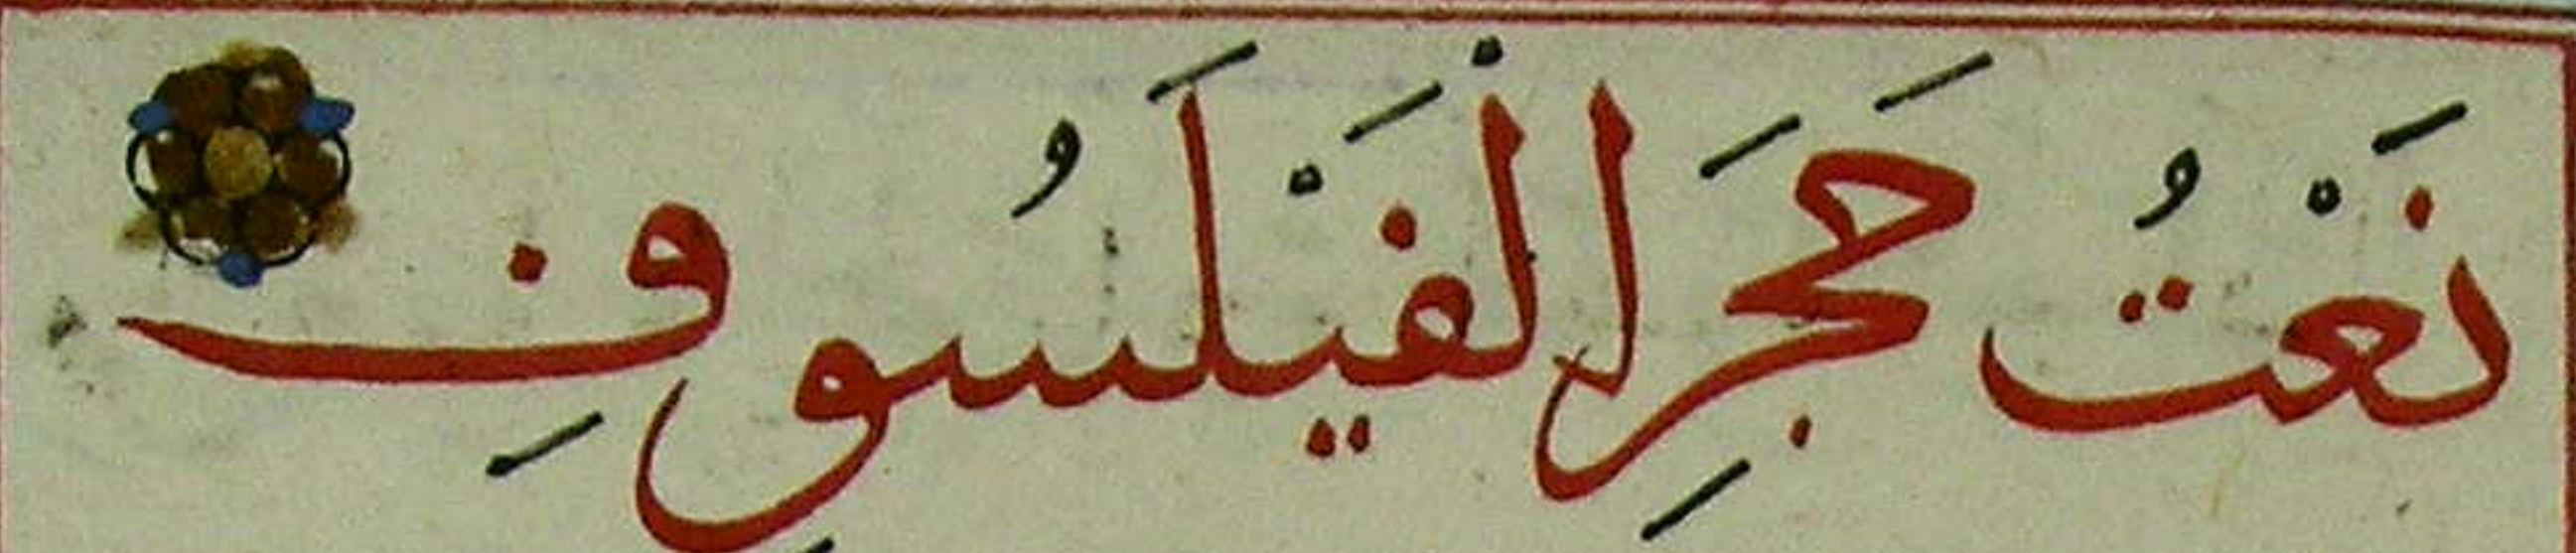 نَعْتُ حَجَرِ الْفَيْلَسُوفِ